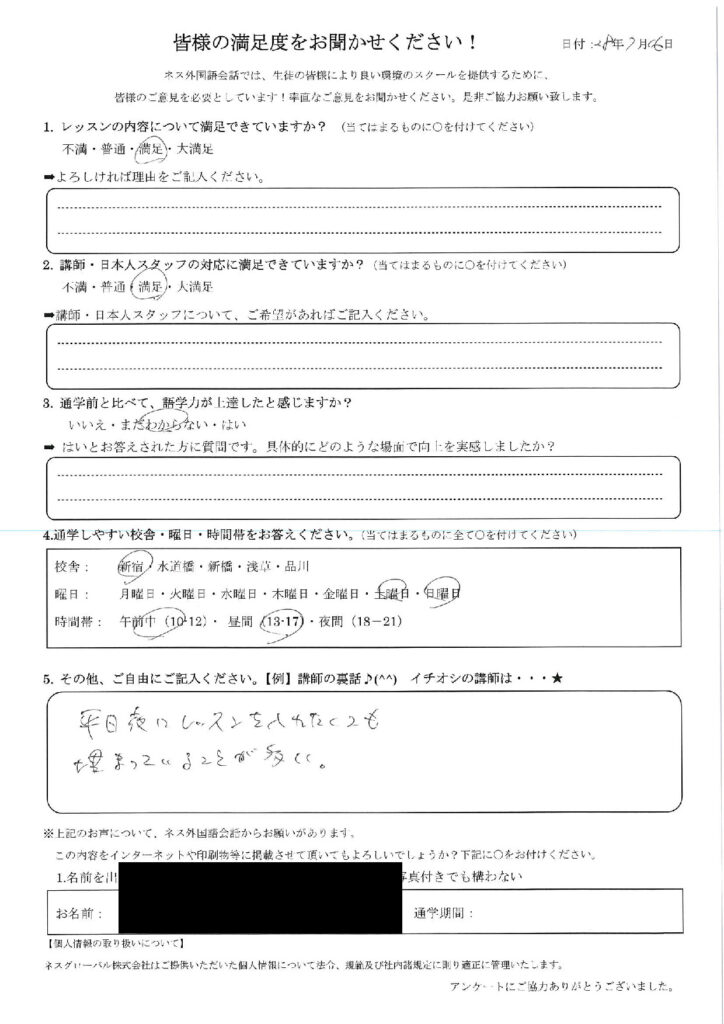 皆様の満足度をお聞かせください！
日付：28年7月16日
ネス外国語会話では、生徒の皆様により良い環境のスクールを提供するために、
皆様のご意見を必要としています！率直なご意見をお聞かせください。是非ご協力お願い致します。
1. レッスンの内容について満足できていますか？ （当てはまるものに○を付けてください）
不満・普通・満足・大満足
➡よろしければ理由をご記入ください。
2. 講師・日本人スタッフの対応に満足できていますか？（当てはまるものに○を付けてください）
不満・普通・満足・大満足
➡講師・日本人スタッフについて、ご希望があればご記入ください。
3. 通学前と比べて、語学力が上達したと感じますか？
いいえ・まだわからない・はい
➡ はいとお答えされた方に質問です。具体的にどのような場面で向上を実感しましたか？
4.通学しやすい校舎・曜日・時間帯をお答えください。（当てはまるものに全て○を付けてください）
校舎： 新宿・水道橋・新橋・浅草・品川
曜日： 月曜日・火曜日・水曜日・木曜日・金曜日・土曜日・日曜日
時間帯： 午前中（10-12）・ 昼間（13-17）・夜間（18－21）
5. その他、ご自由にご記入ください。【例】講師の裏話♪(^^) イチオシの講師は・・・★
平日夜にレッスンを入れたくても
埋まっていることが多い。
※上記のお声について、ネス外国語会話からお願いがあります。
この内容をインターネットや印刷物等に掲載させて頂いてもよろしいでしょうか？下記に○をお付けください。
1.名前を出 写真付きでも構わない
お名前： 通学期間：
【個人情報の取り扱いについて】
ネスグローバル株式会社はご提供いただいた個人情報について法令、規範及び社内諸規定に則り適正に管理いたします。
アンケートにご協力ありがとうございました。